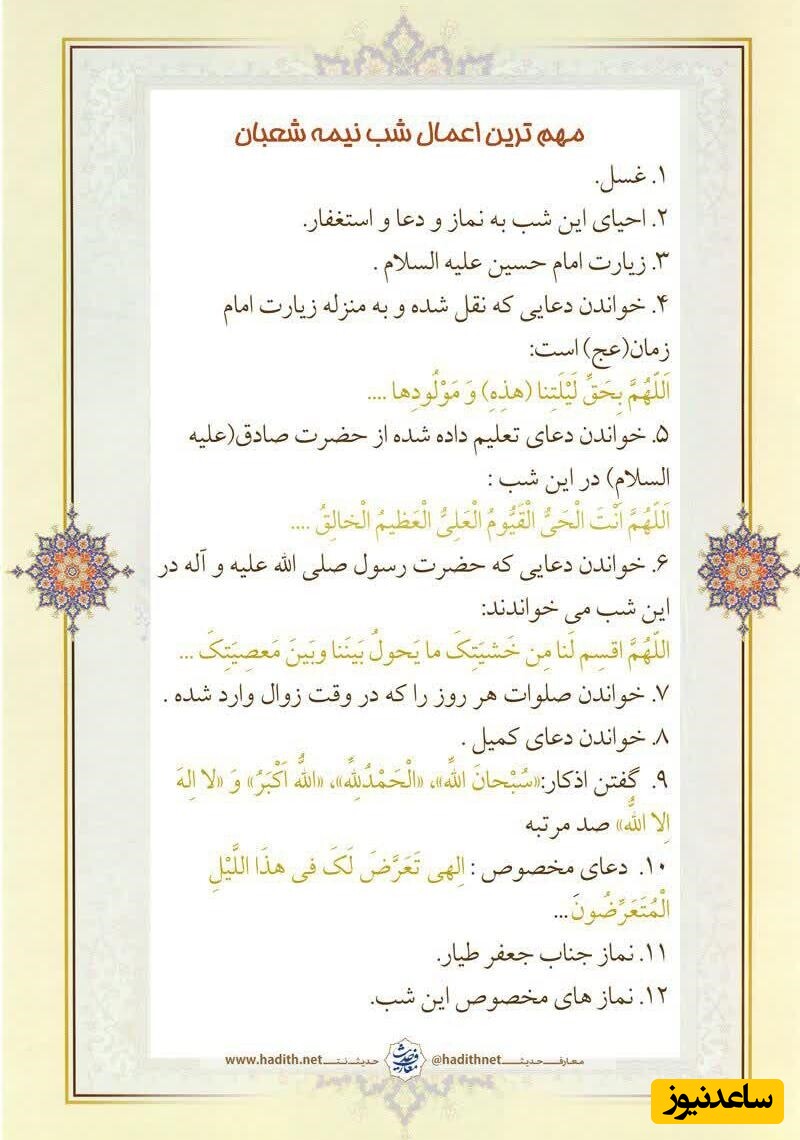 مهم ترین اعمال شب نیمه شعبان
۱. غسل.
۲. احیای این شب به نماز و دعا و استغفار.
۳. زیارت امام حسین علیه السلام .
۴. خواندن دعایی که نقل شده و به منزله زیارت امام
زمان(عج) است:
اَللّهُمَّ بِحَقِّ لَیْلَتِنا (هذِهِ) وَ مَوْلُودِها ....
۵. خواندن دعای تعلیم داده شده از حضرت صادق(علیه
السلام) در این شب :
اَللّهُمَّ اَنْتَ الْحَیُّ الْقَیُّومُ الْعَلِیُّ الْعَظیمُ الْخالِقُ ....
۶. خواندن دعایی که حضرت رسول صلی الله علیه و آله در
این شب می خواندند:
اللّهُمَّ اقسِم لَنا مِن خَشیَتِکَ ما یَحولُ بَینَنا وبَینَ مَعصِیَتِکَ ...
۷. خواندن صلوات هر روز را که در وقت زوال وارد شده .
۸. خواندن دعای کمیل .
۹. گفتن اذکار:«سُبْحانَ اللَّهِ»، «الْحَمْدُلِلَّهِ»، «اللَّهُ اَکْبَرُ» وَ «لا اِلهَ
اِلا اللَّهُ» صد مرتبه
۱۰. دعای مخصوص : اِلهی تَعَرَّضَ لَکَ فی هذَا اللَّیْلِ
الْمُتَعَرِّضُونَ...
۱۱. نماز جناب جعفر طیار.
۱۲. نماز های مخصوص این شب.
معارف حدیث @hadithnet معارف حدیث حدیث نت www.hadith.net
ساعدنیوز